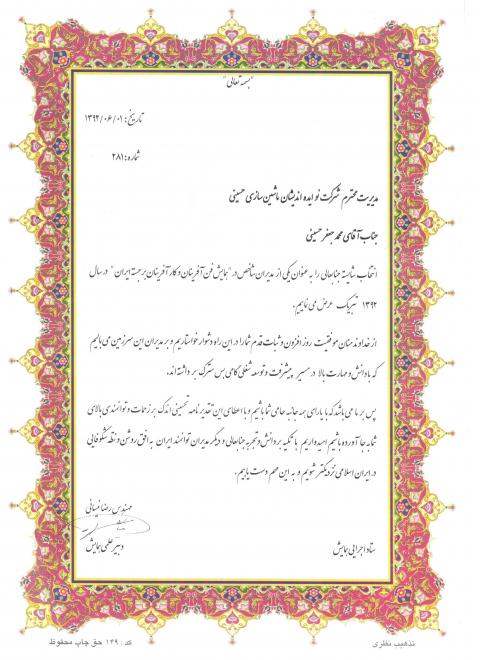 "بسمه تعالی"
تاریخ: ۱۳۹۲/۰۶/۰۱
شماره: ۲۸۱
مدیریت محترم شرکت نو ایده اندیشان ماشین سازی حسینی
جناب آقای محمد جعفر حسینی
انتخاب شایسته جنابعالی را به عنوان یکی از مدیران شاخص در "همایش فن آفرینان و کارآفرینان برجسته ایران" در سال
۱۳۹۲ تبریک عرض می نماییم.
از خداوند منان موفقیت روز افزون و ثبات قدم شما را در این راه دشوار خواستاریم و بر مدیران این سرزمین می بالیم
که با دانش و مهارت بالا در مسیر پیشرفت و توسعه شغلی گامی بس سترگ برداشته اند.
پس بر ما می باشد که با یارای همه جانبه حامی شما باشیم و با اعطای این تقدیرنامه تحسینی اندک بر زحمات و توانمندی بالای
شما به جا آورده باشیم امیدواریم با تکیه بر دانش و تجربه جنابعالی و دیگر مدیران توانمند ایران به افق روشن و نقطه شکوفایی
در ایران اسلامی نزدیکتر شویم و به این مهم دست یابیم.
مهندس رضا نیسانی
ستاد اجرایی همایش
دبیر علمی همایش
تذهیب نظری
کد: ۱۳۹ حق چاپ محفوظ